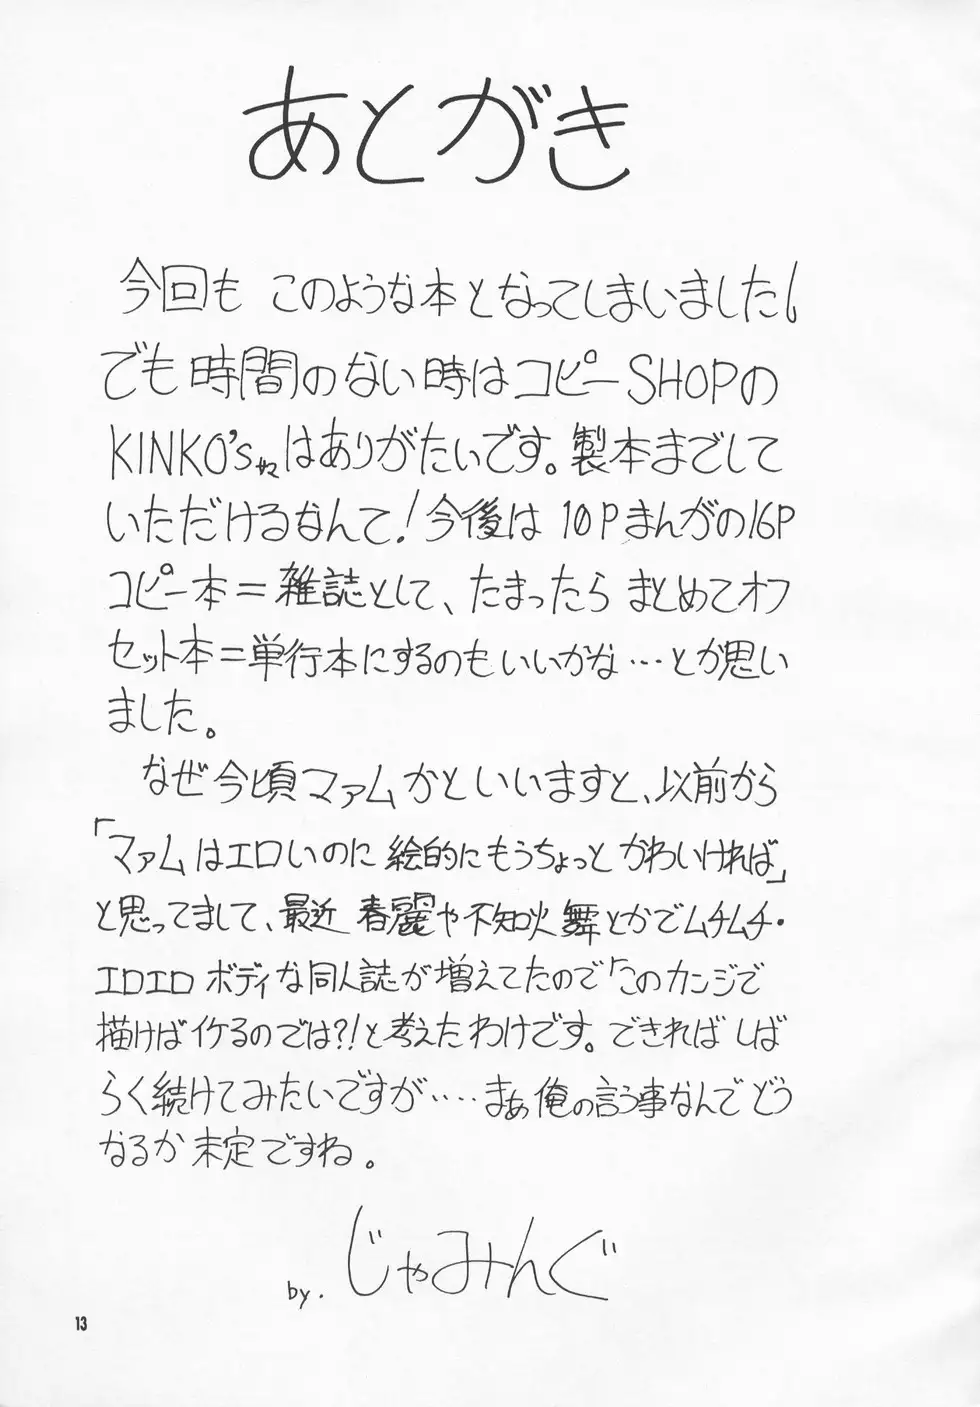 あとがき
今回も このような本となってしまいました!
でも時間のない時はコピーSHOPの
KINKO'sはありがたいです。製本までして
いただけるなんて!今後は 10Pまんがの16P
コピー本=雑誌として、たまったら まとめてオフ
セット本=単行本にするのもいいかな…とか思い
ました。
なぜ今頃マァムかといいますと、以前から
「マァムはエロいのに 絵的にもうちょっと かわいければ」
と思ってまして、最近 春麗や不知火舞とかでムチムチ・
エロエロ ボディな同人誌が増えてたので「このカンジで
描けばイケるのでは?!と考えたわけです。できれば しば
らく続けてみたいですが‥‥まぁ俺の言う事なんで どう
なるか 未定ですね。
by. じゃみんぐ
13